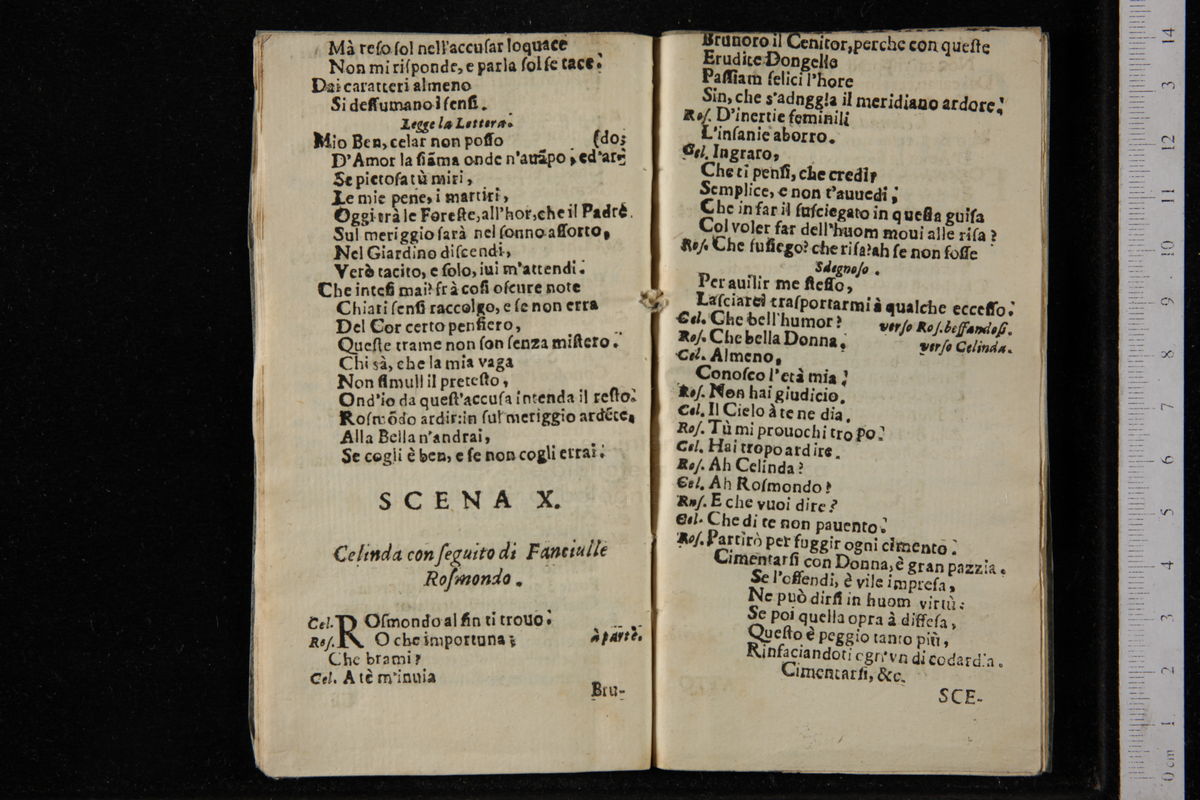 Mà reſo ſol nell'accuſar loquace
Non mi riſponde, e parla ſol ſe tace.
Dai caratteri almeno
Si deſſumano i ſenſi.
Legge la Lettera.
Mio Ben, celar non poſſo (do;
D'Amor la fiãma onde n'auãpo, ed'arẽ
Se pietoſa tù miri,
Le mie pene, i martiri,
Oggi trà le Foreſte, all'hor, che il Padre.
Sul meriggio ſarà nel ſonno aſſorto,
Nel Giardino diſcendi,
Verò tacito, e ſolo, iui m'attendi.
Che inteſi mai? frà coſi oſcure note
Chiari ſenſi raccolgo, e ſe non erra
Del Cor certo penſiero,
Queſte trame non ſon ſenza miſtero.
Chi sà, che la mia vaga
Non ſimuli il preteſto,
Ond'io da queſt'accuſa intenda il reſto.
Roſmõdo ardir: in ſul meriggio ardẽte,
Alla Bella n'andrai,
Se cogli è ben, e ſe non cogli errai.
SCENA X.
Celinda con ſeguito di Fanciulle
Roſmondo.
Cel. ROſmondo al fin ti trouo.
Roſ. O che importuna; à parte.
Che brami?
Cel. A tè m'inuia
Bru-
Brunoro il Cenitor, perche con queſte
Erudite Dongelle
Paſſiam felici l'hore
Sin, che s'adnggla il meridiano ardore.
Roſ. D'inertie feminili
L'inſanie aborro.
Cel. Ingrato,
Che ti penſi, che credi?
Semplice, e non t'auuedi,
Che in far il ſuſciegato in queſta guiſa
Col voler far dell'huom moui alle riſa?
Roſ. Che ſuſiego? che riſa? ah ſe non foſſe
Sdegnoſo.
Per auilir me ſteſſo,
Laſciarei traſportarmi à qualche ecceſſo.
Cel. Che bell'humor? verſo Roſ. beffandoſi.
Roſ. Che bella Donna. verſo Celinda.
Cel. Almeno,
Conoſco l'età mia.
Roſ. Non hai giudicio.
Cel. Il Cielo à te ne dia.
Roſ. Tù mi prouochi tropo.
Cel. Hai tropo ardire.
Roſ. Ah Celinda?
Cel. Ah Roſmondo?
Roſ. E che vuoi dire?
Cel. Che di te non pauento.
Roſ. Partirò per fuggir ogni cimento.
Cimentarſi con Donna, è gran pazzia.
Se l'offendi, è vile impreſa,
Ne può dirſi in huom virtù:
Se poi quella opra à diffeſa,
Queſto è peggio tanto più,
Rinfaciandoti ogn'vn di codardia.
Cimentarſi, &c.
SCE-